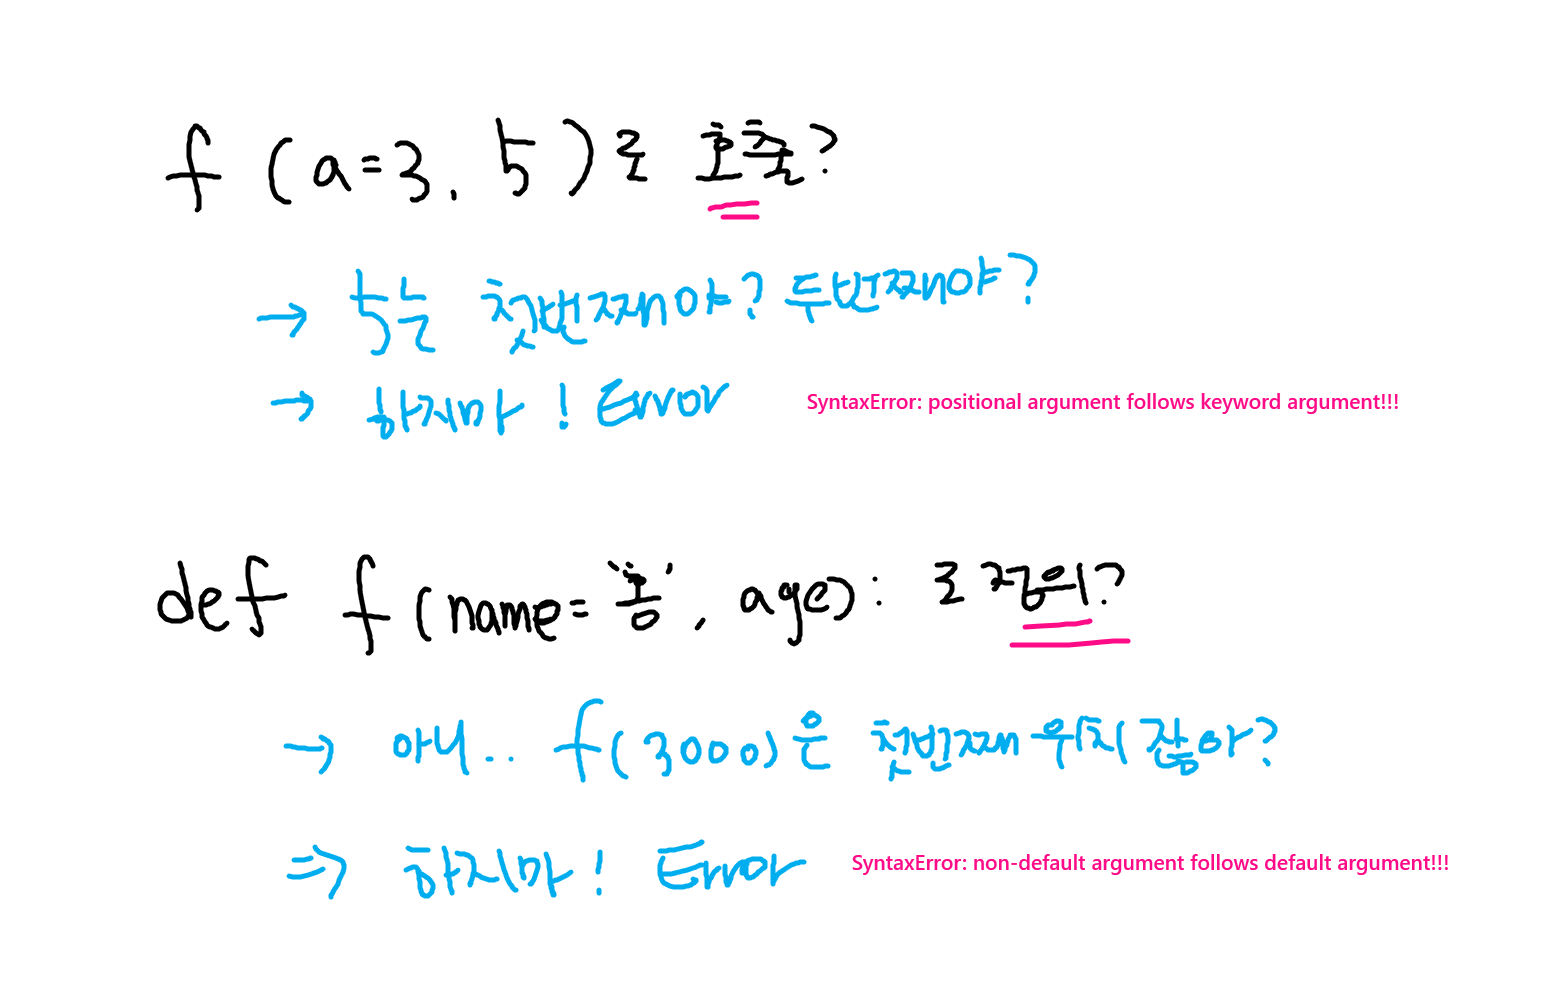 f (a=3, 5)로 호출?
→ 5는 첫번째야? 두번째야?
→ 하지마! Error SyntaxError: positional argument follows keyword argument!!!
def f (name='홍', age): 로 정의?
→ 아니.. f(3000)은 첫번째 위치 잖아?
⇒ 하지마! Error SyntaxError: non-default argument follows default argument!!!